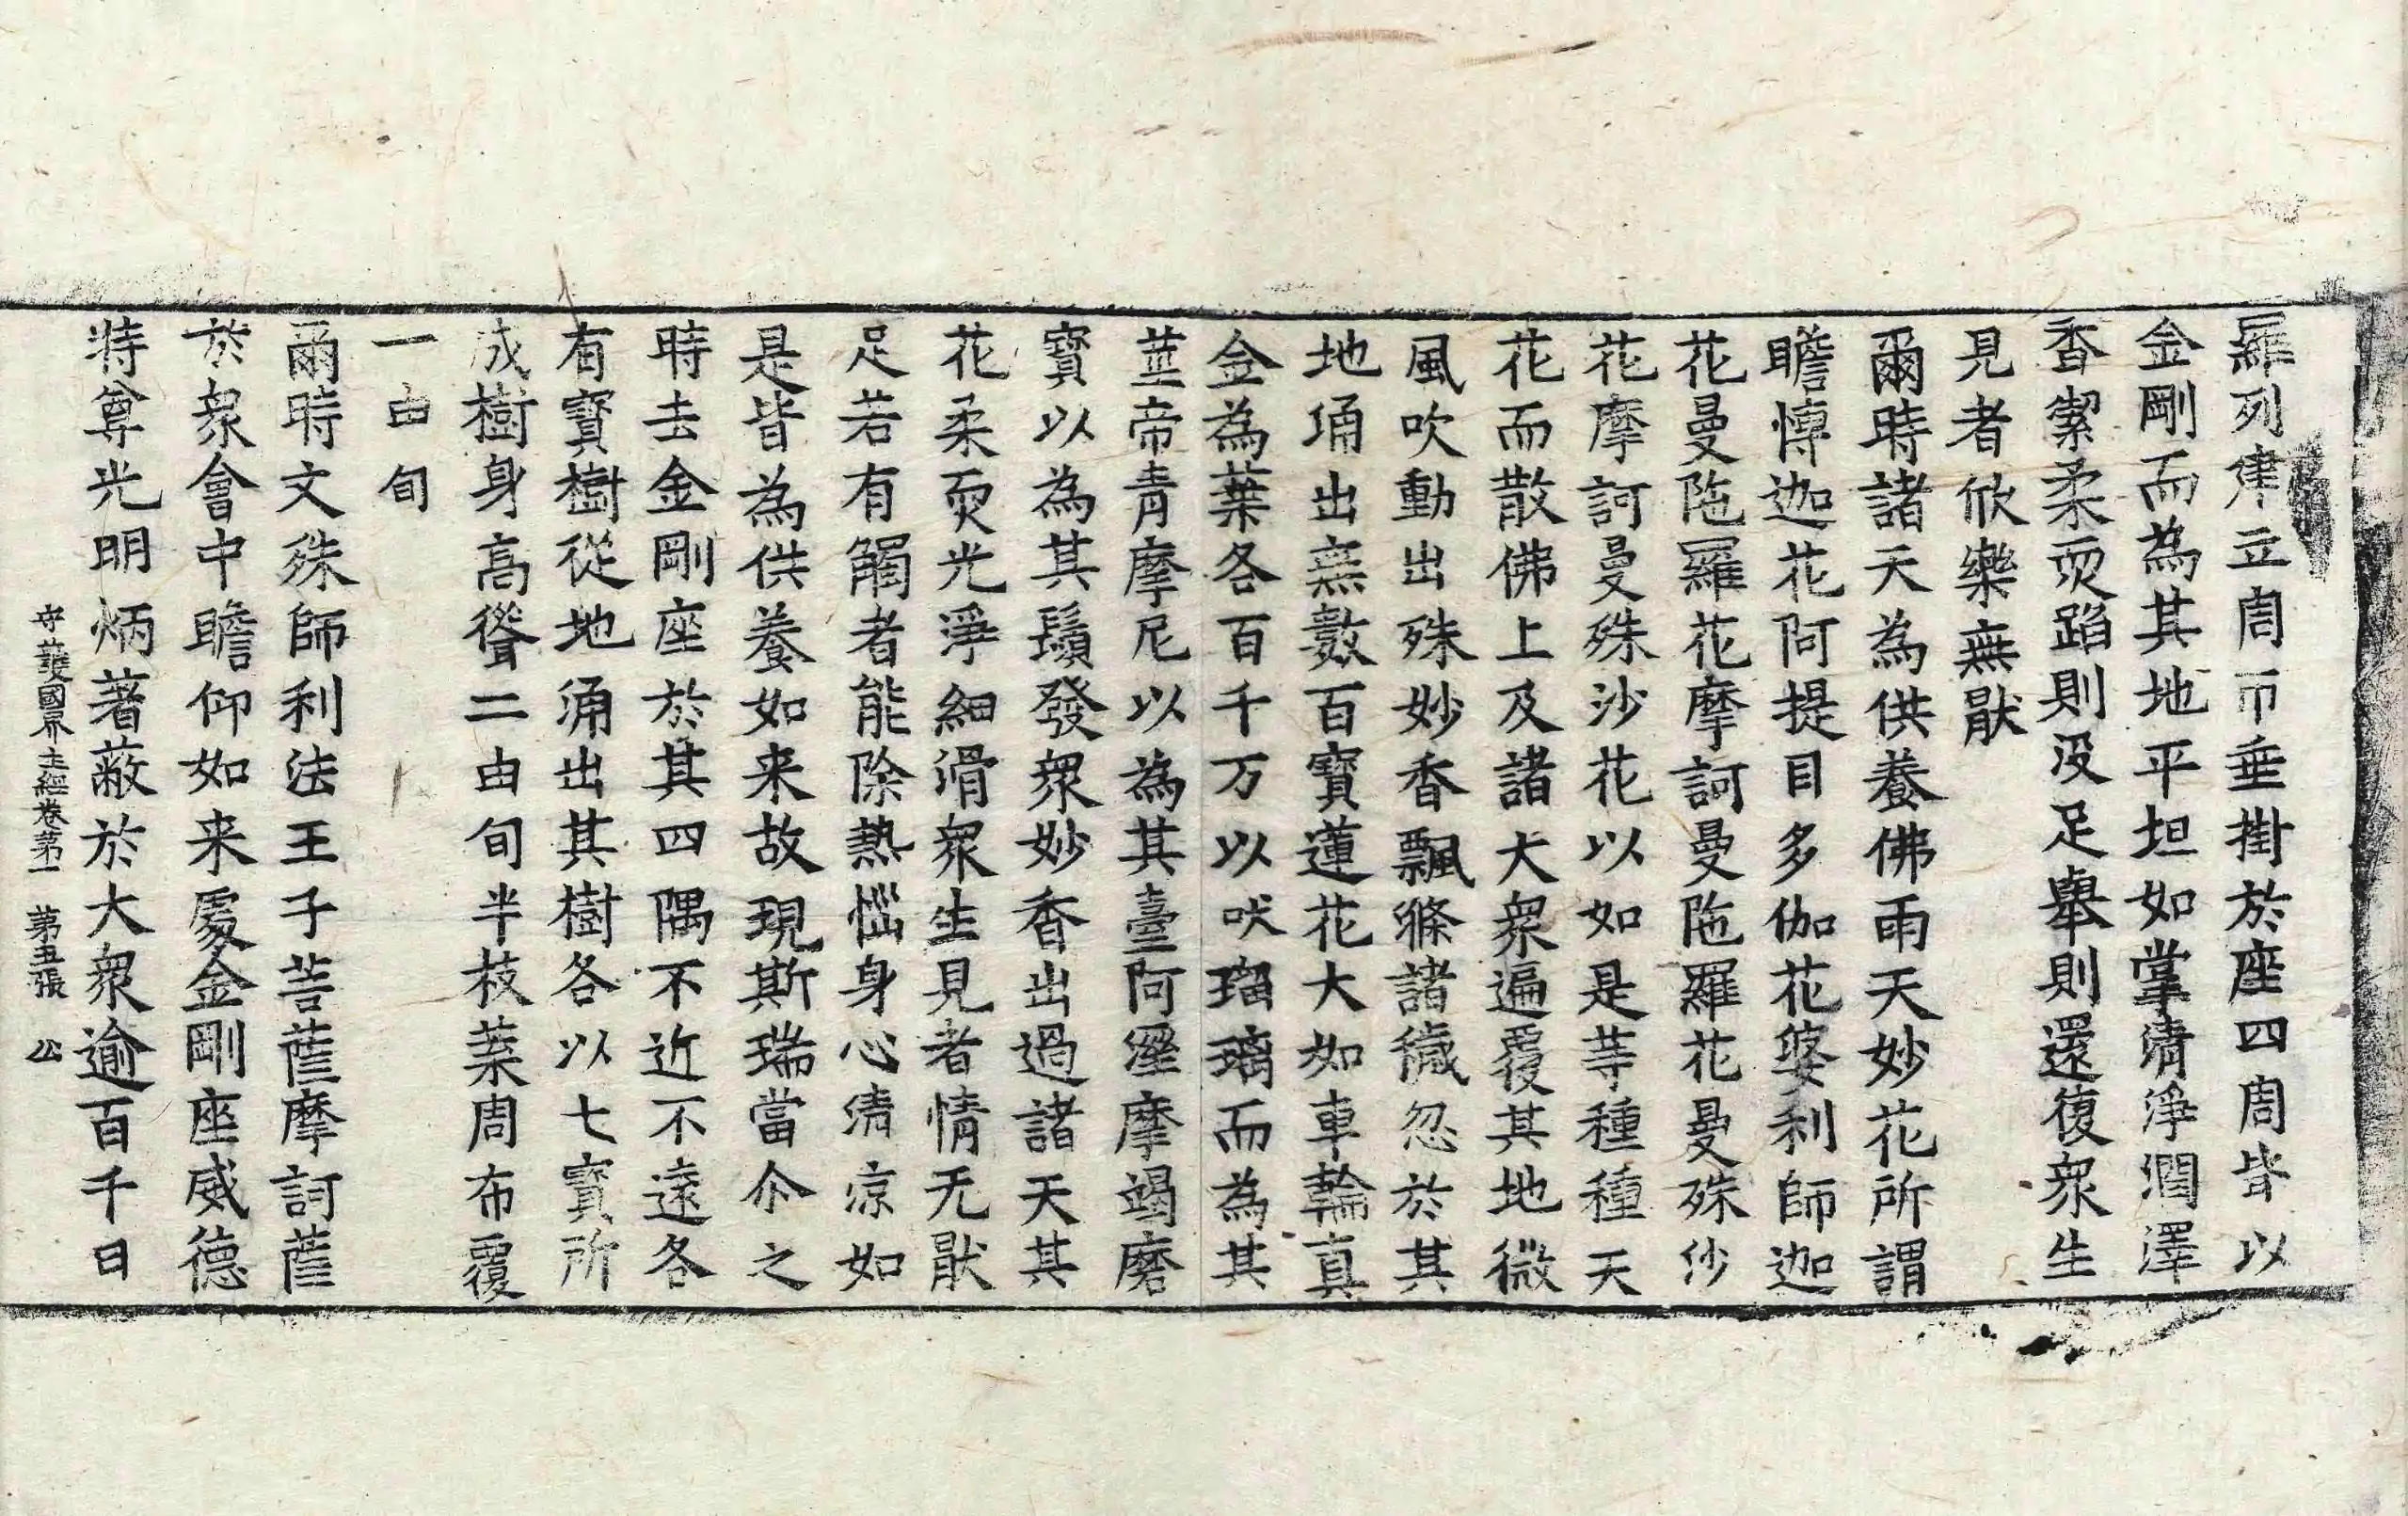 羅列建立周帀垂掛於座四周皆以
金剛而為其地平坦如掌清淨潤澤
香潔柔耎蹈則没足舉則還復衆生
見者欣樂無猒
爾時諸天為供養佛雨天妙花所謂
瞻愽迦花阿提目多伽花婆利師迦
花曼陁羅花摩訶曼陁羅花曼殊沙
花摩訶曼殊沙花以如是等種種天
花而散佛上及諸大衆遍覆其地微
風吹動出殊妙香飄滌諸穢忽於其
地涌出無數百寶蓮花大如車輪真
金為葉各百千万以吠瑠璃而為其
莖帝青摩尼以為其臺阿溼摩竭磨
寶以為其鬚發衆妙香出過諸天其
花柔耎光淨細滑衆生見者情无猒
足若有觸者能除熱惱身心清涼如
是皆為供養如来故現斯瑞當尒之
時去金剛座於其四隅不近不遠各
有寶樹從地涌出其樹各以七寶所
成樹身高聳二由旬半枝葉周布覆
一由旬
爾時文殊師利法王子菩薩摩訶薩
於衆會中瞻仰如来處金剛座威德
特尊光明炳著蔽於大衆逾百千日
守護國界主經卷第一 第五張 公